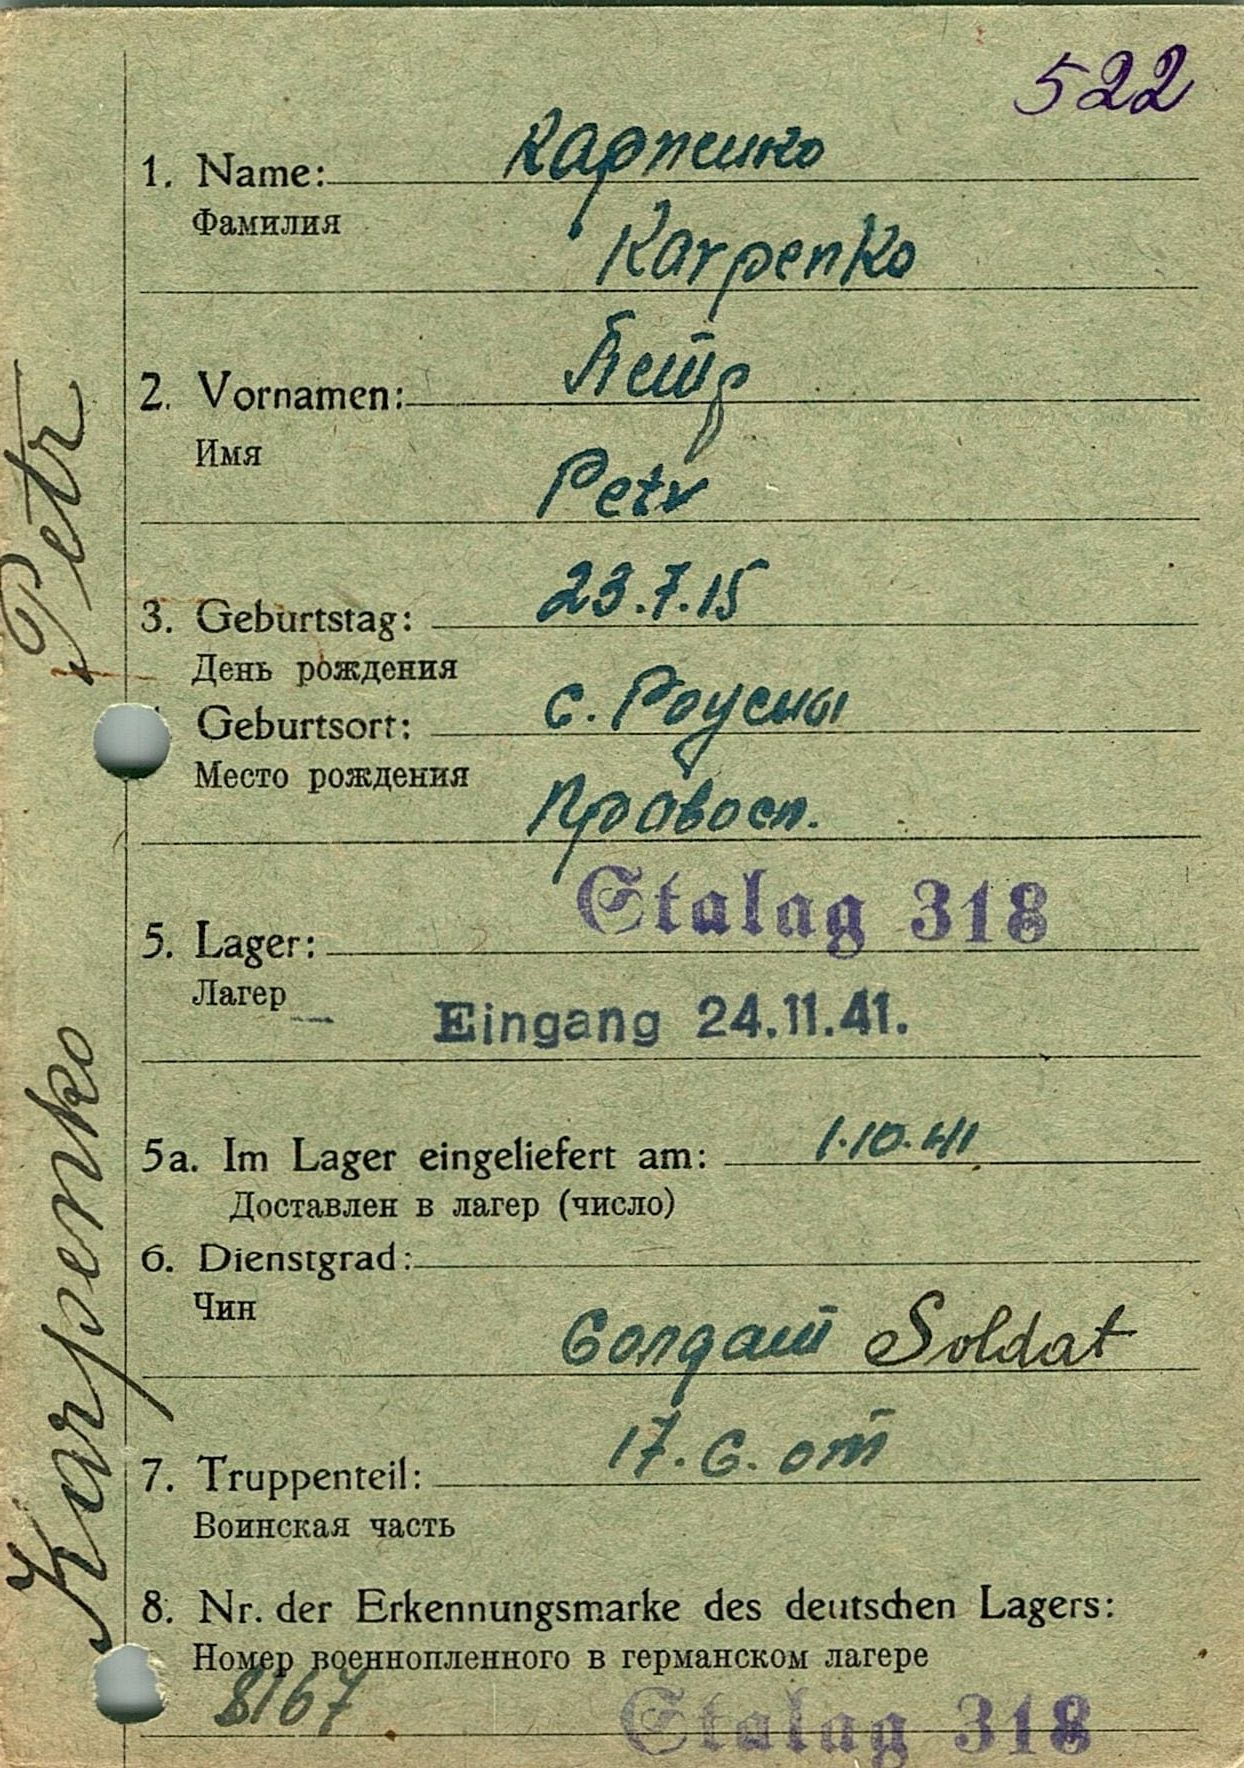 522
1. Name: Карпенко
Фамилия
Karpenko
2. Vornamen: Петр
Имя
Petr
3. Geburtstag: 23.7.15
День рождения
Geburtsort: с.
Место рождения
Правосл.
Stalag 318
5. Lager:
Лагер
Eingang 24.11.41.
5a. Im Lager eingeliefert am: 1.10.41
Доставлен в лагер (число)
6. Dienstgrad:
Чин
Солдат Soldat
7. Truppenteil: 17.
Воинская часть
8. Nr. der Erkennungsmarke des deutschen Lagers:
Номер военнопленного в германском лагере
8167
Stalag 318
Karpenko Petr